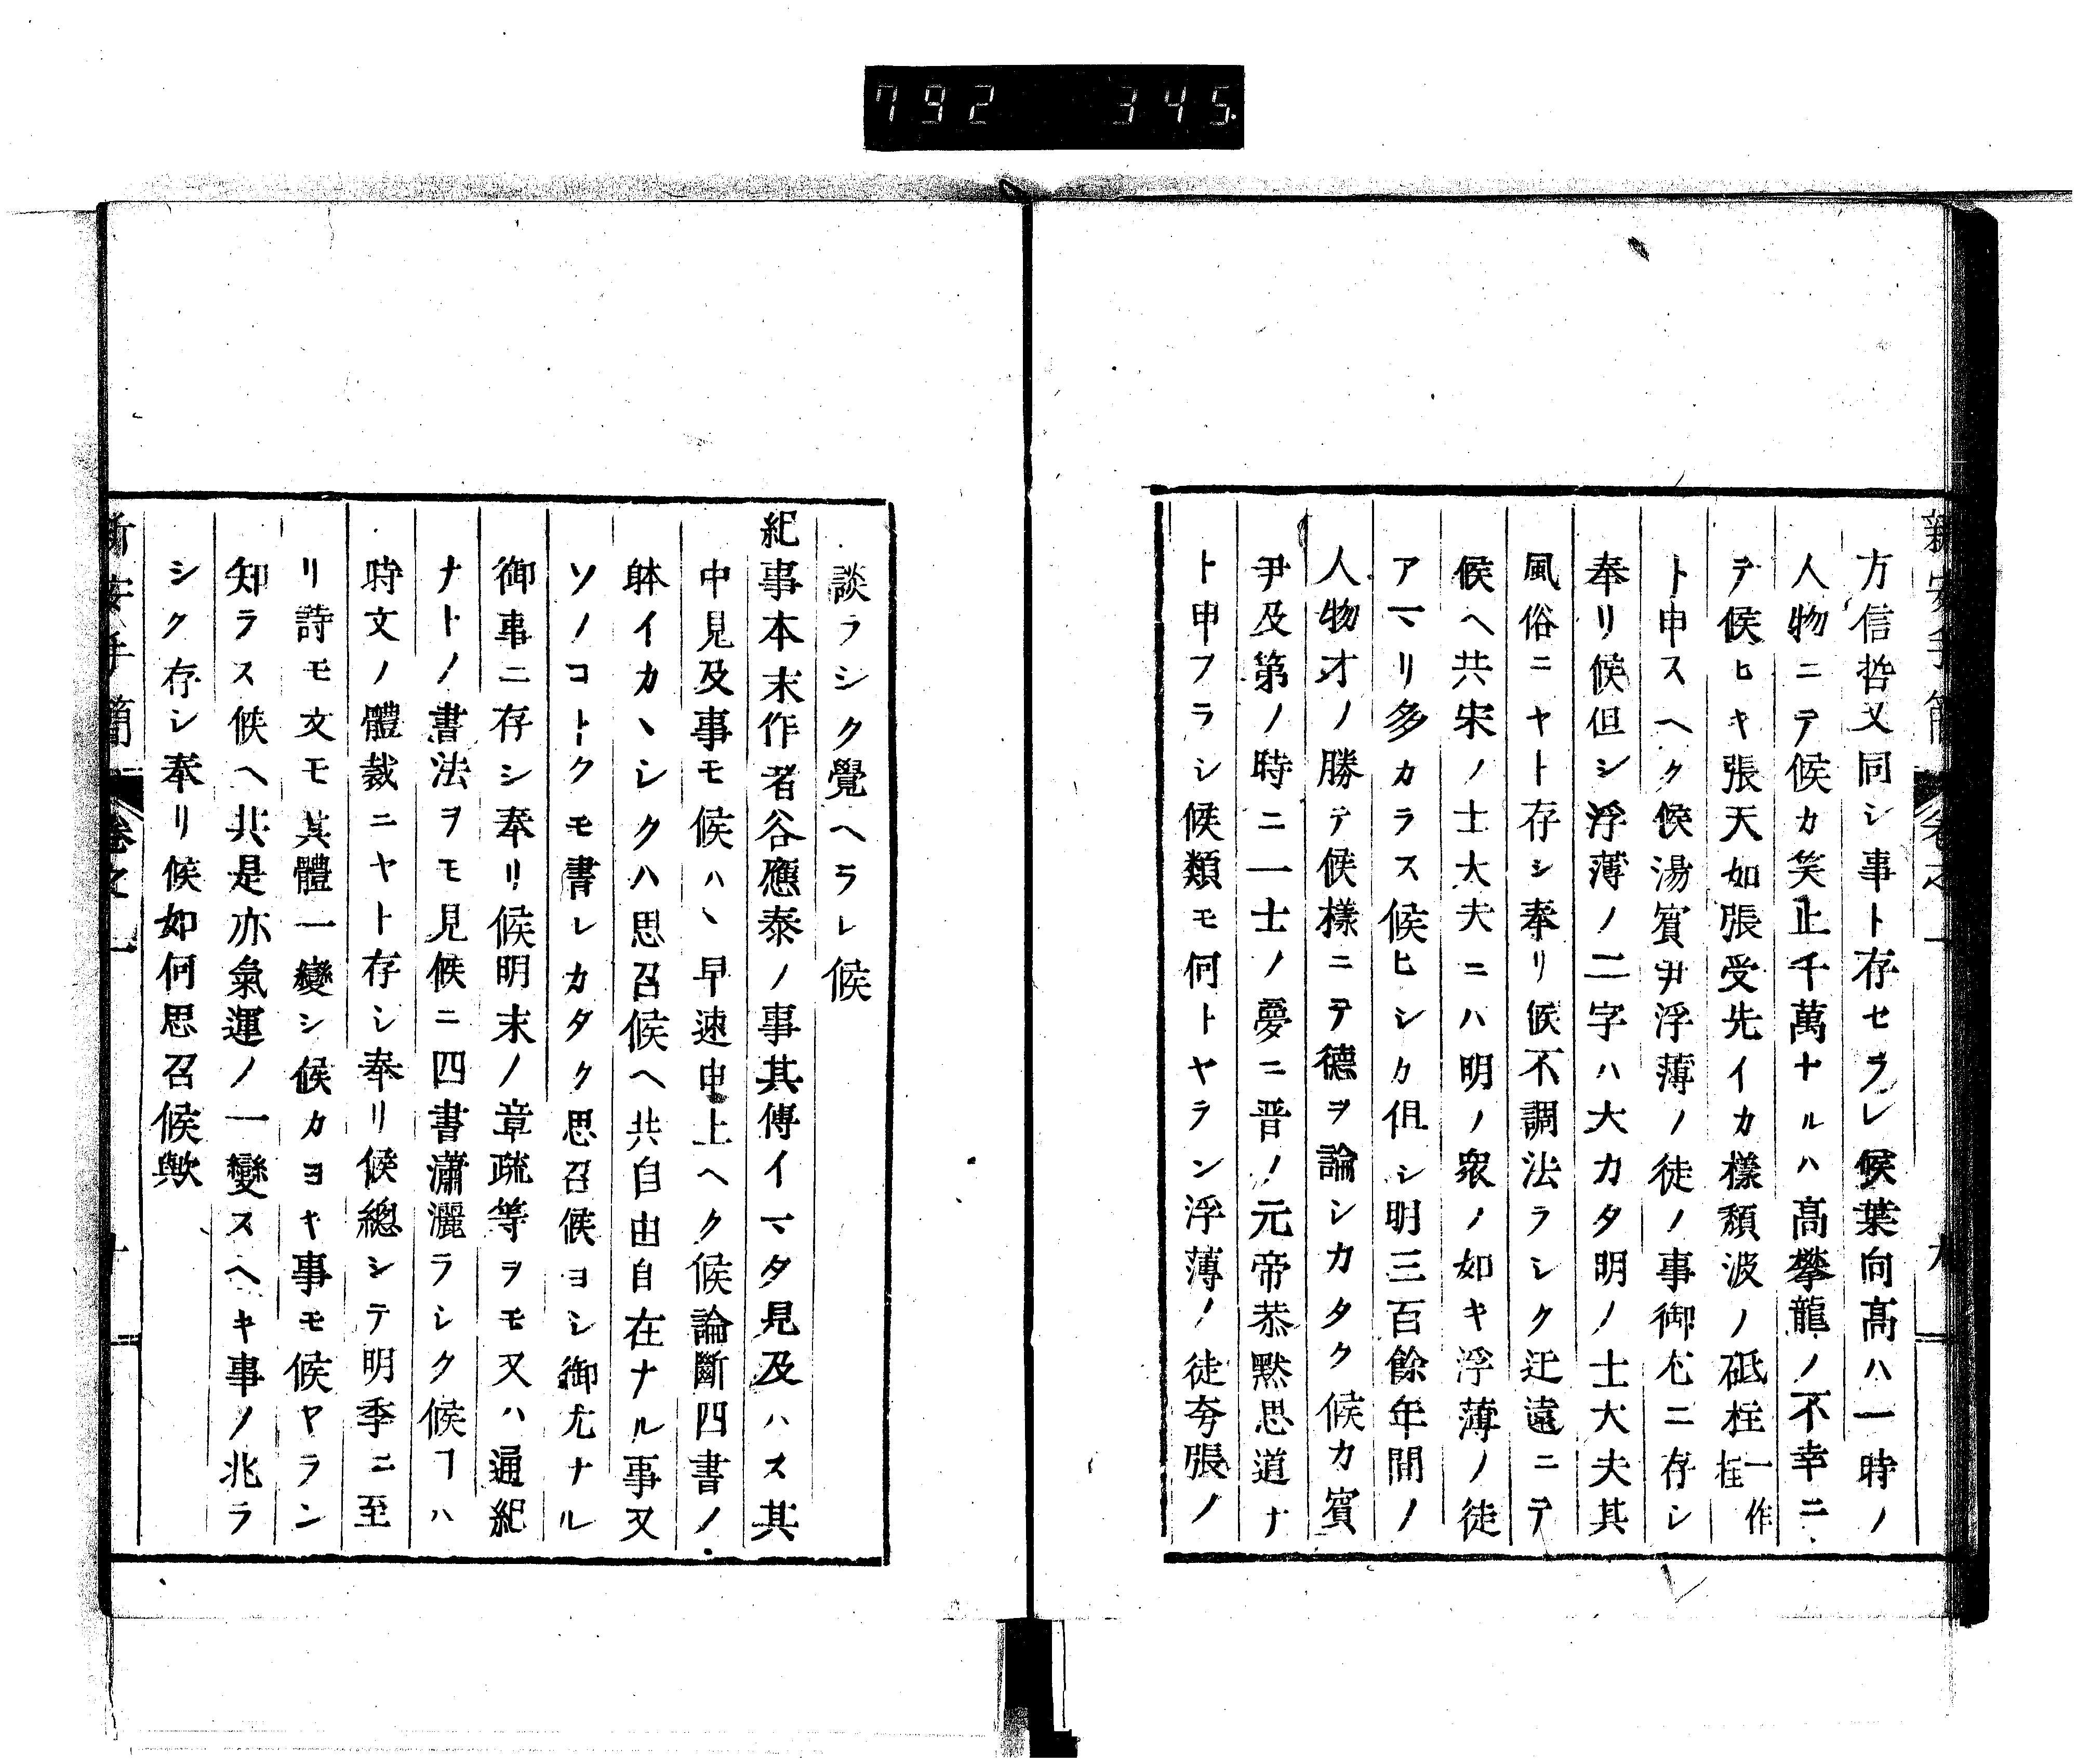 792 345.
新安手簡 卷之一 九
方信哲又同シ事ト存セラレ候葉向高ハ一時ノ
人物ニテ候カ笑止千萬ナルハ高攀龍ノ不幸ニ
テ候ヒキ張天如張受先イカ樣頽波ノ砥柱一作枉
ト申スヘク候湯賓尹浮薄ノ徒ノ事御尤ニ存シ
奉リ候但シ浮薄ノ二字ハ大カタ明ノ士大夫其
風俗ニヤト存シ奉リ候不調法ラシク迂遠ニテ
候ヘ共宋ノ士大夫ニハ明ノ衆ノ如キ浮薄ノ徒
アマリ多カラス候ヒシカ但シ明三百餘年間ノ
人物才ノ勝テ候樣ニテ德ヲ論シカタク候カ賓
尹及第ノ時ニ一士ノ夢ニ晋ノ元帝恭默思道ナ
ト申フラシ候類モ何トヤラン浮薄ノ徒夸張ノ
談ラシク覺ヘラレ候
紀事本末作者谷應泰ノ事其傳イマタ見及ハス其
中見及事モ候ハヽ早速申上ヘク候論斷四書ノ
躰イカヽシクハ思召候ヘ共自由自在ナル事又
ソノコトクモ書レカタク思召候ヨシ御尤ナル
御事ニ存シ奉リ候明末ノ章疏等ヲモ又ハ通紀
ナトノ書法ヲモ見候ニ四書瀟灑ラシク候ヿハ
時文ノ體裁ニヤト存シ奉リ候總シテ明季ニ至
リ詩モ文モ其體一變シ候カヨキ事モ候ヤラン
知ラス候ヘ共是亦氣運ノ一變スヘキ事ノ兆ラ
シク存シ奉リ候如何思召候歟
新安手簡 卷之一 十